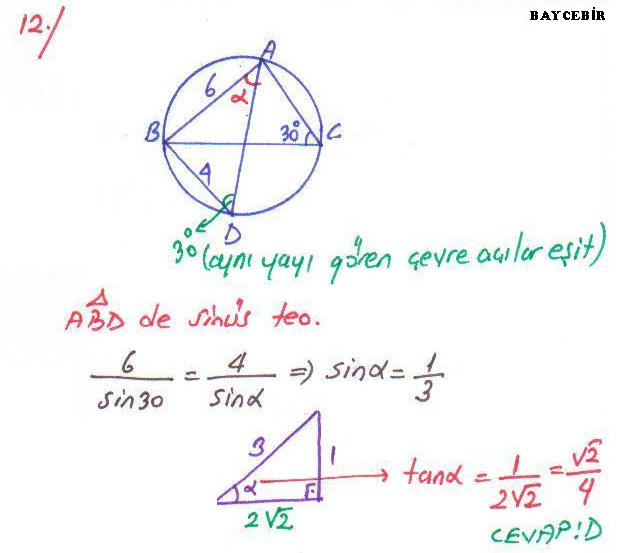 12./
BAYCEBİR
A
6
α
B
30°
C
4
D
30° (aynı yayı gören çevre açılar eşit)
ABD de sinüs teo.
6/sin30 = 4/sinα ⇒ sinα = 1/3
3
1
α
2√2
tanα = 1/2√2 = √2/4
CEVAP:D